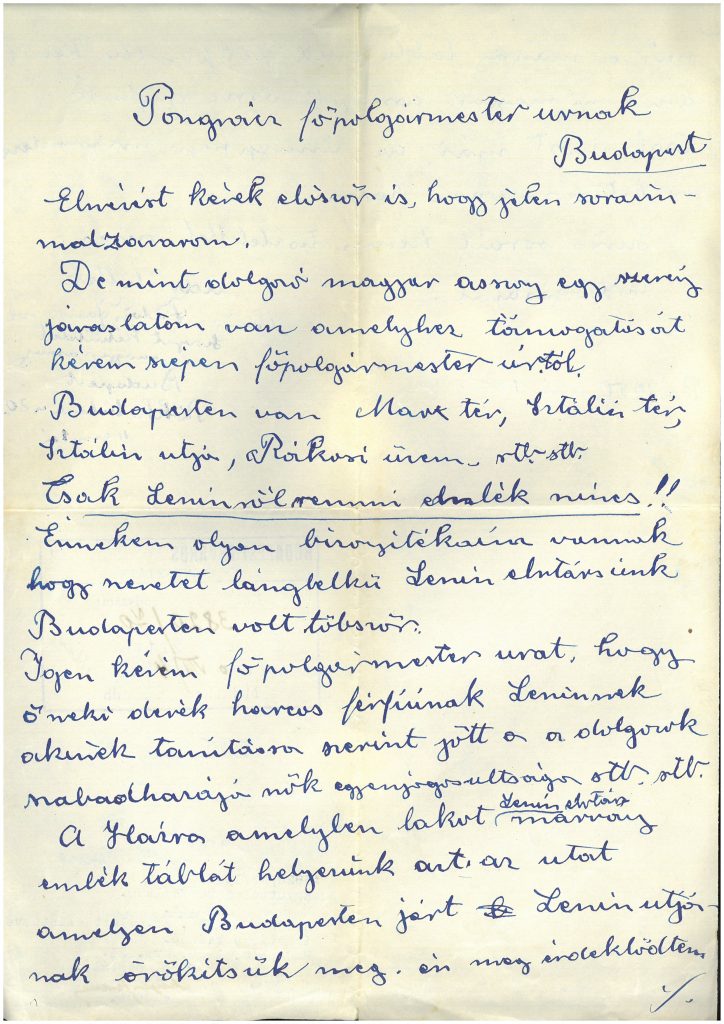 Pongrácz főpolgármester urnak
Budapest
Elnézést kérek először is, hogy jelen soraim-
mal zavarom.
De mint dolgozó magyar asszony egy szerény
javaslatom van amelyhez támogatását
kérem szépen főpolgármester úrtól.
Budapesten van Marx tér, Sztálin tér,
Sztálin utja, Rákosi üzem, stb. stb.
Csak Leninről semmi emlék nincs!!
Énnekem olyan bizonyitékaim vannak
hogy szeretet lánglelkü Lenin elvtársunk
Budapesten volt többször.
Igen kérem főpolgármester urat, hogy
őneki derék harcos férfiúnak Leninnek
akinek tanitássa szerint jött a a dolgozok
szabadharájá nők egyenjogosultsága stb. stb.
A Házra amelyben lakot Lenin elvtárs márvány
emlék táblát helyezünk azt. az utat
amelyen Budapesten járt Lenin utjá-
nak örökitsük meg. én meg érdeklödtem